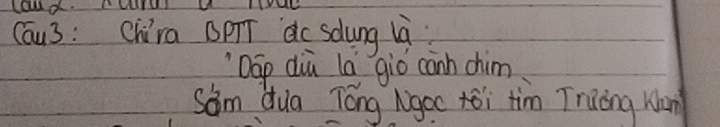 Câu3: Chỉ ra BPTT đc sdụng là:
"Dập dìu lá gió cành chim
Sớm đưa Tống Ngọc tối tìm Trường Khanh